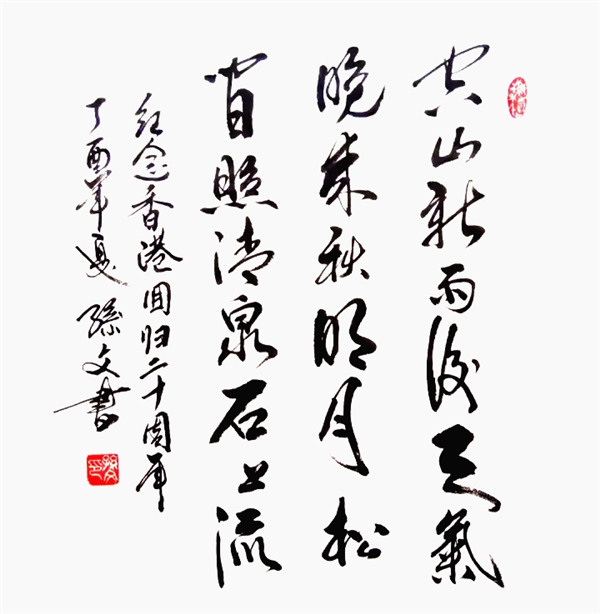 空山新雨後天氣
晚来秋明月松
间照清泉石上流
纪念香港回归二十周年
丁酉年夏 孫文書